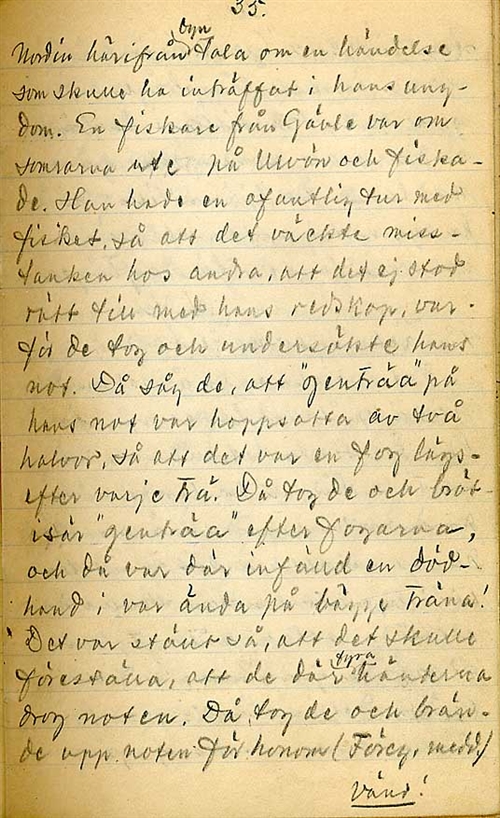 35.
byn
Nordin härifrån tala om en händelse
som skulle ha inträffat i hans ung-
dom. En fiskare från Gävle var om
somrarna ute på Ulvön och fiska-
de. Han hade en ofantlig tur med
fisket, så att det väckte miss-
tanken hos andra, att det ej stod
rätt till med hans redskap, var-
för de tog och undersökte hans
not. Då såg de, att "genträa" på
hans not var hoppsatta av två
halvor, så att det var en fog längs-
efter varje trä. Då tog de och bröt
isär "genträa" efter fogarna,
och då var där infäld en död-
hand i var ända på bägge träna!
Det var stänt så, att det skulle
föreställa, att de där fyra händerna
drog noten. Då tog de och brän-
de upp noten för honom (Föreg. medd.)
Vänd!